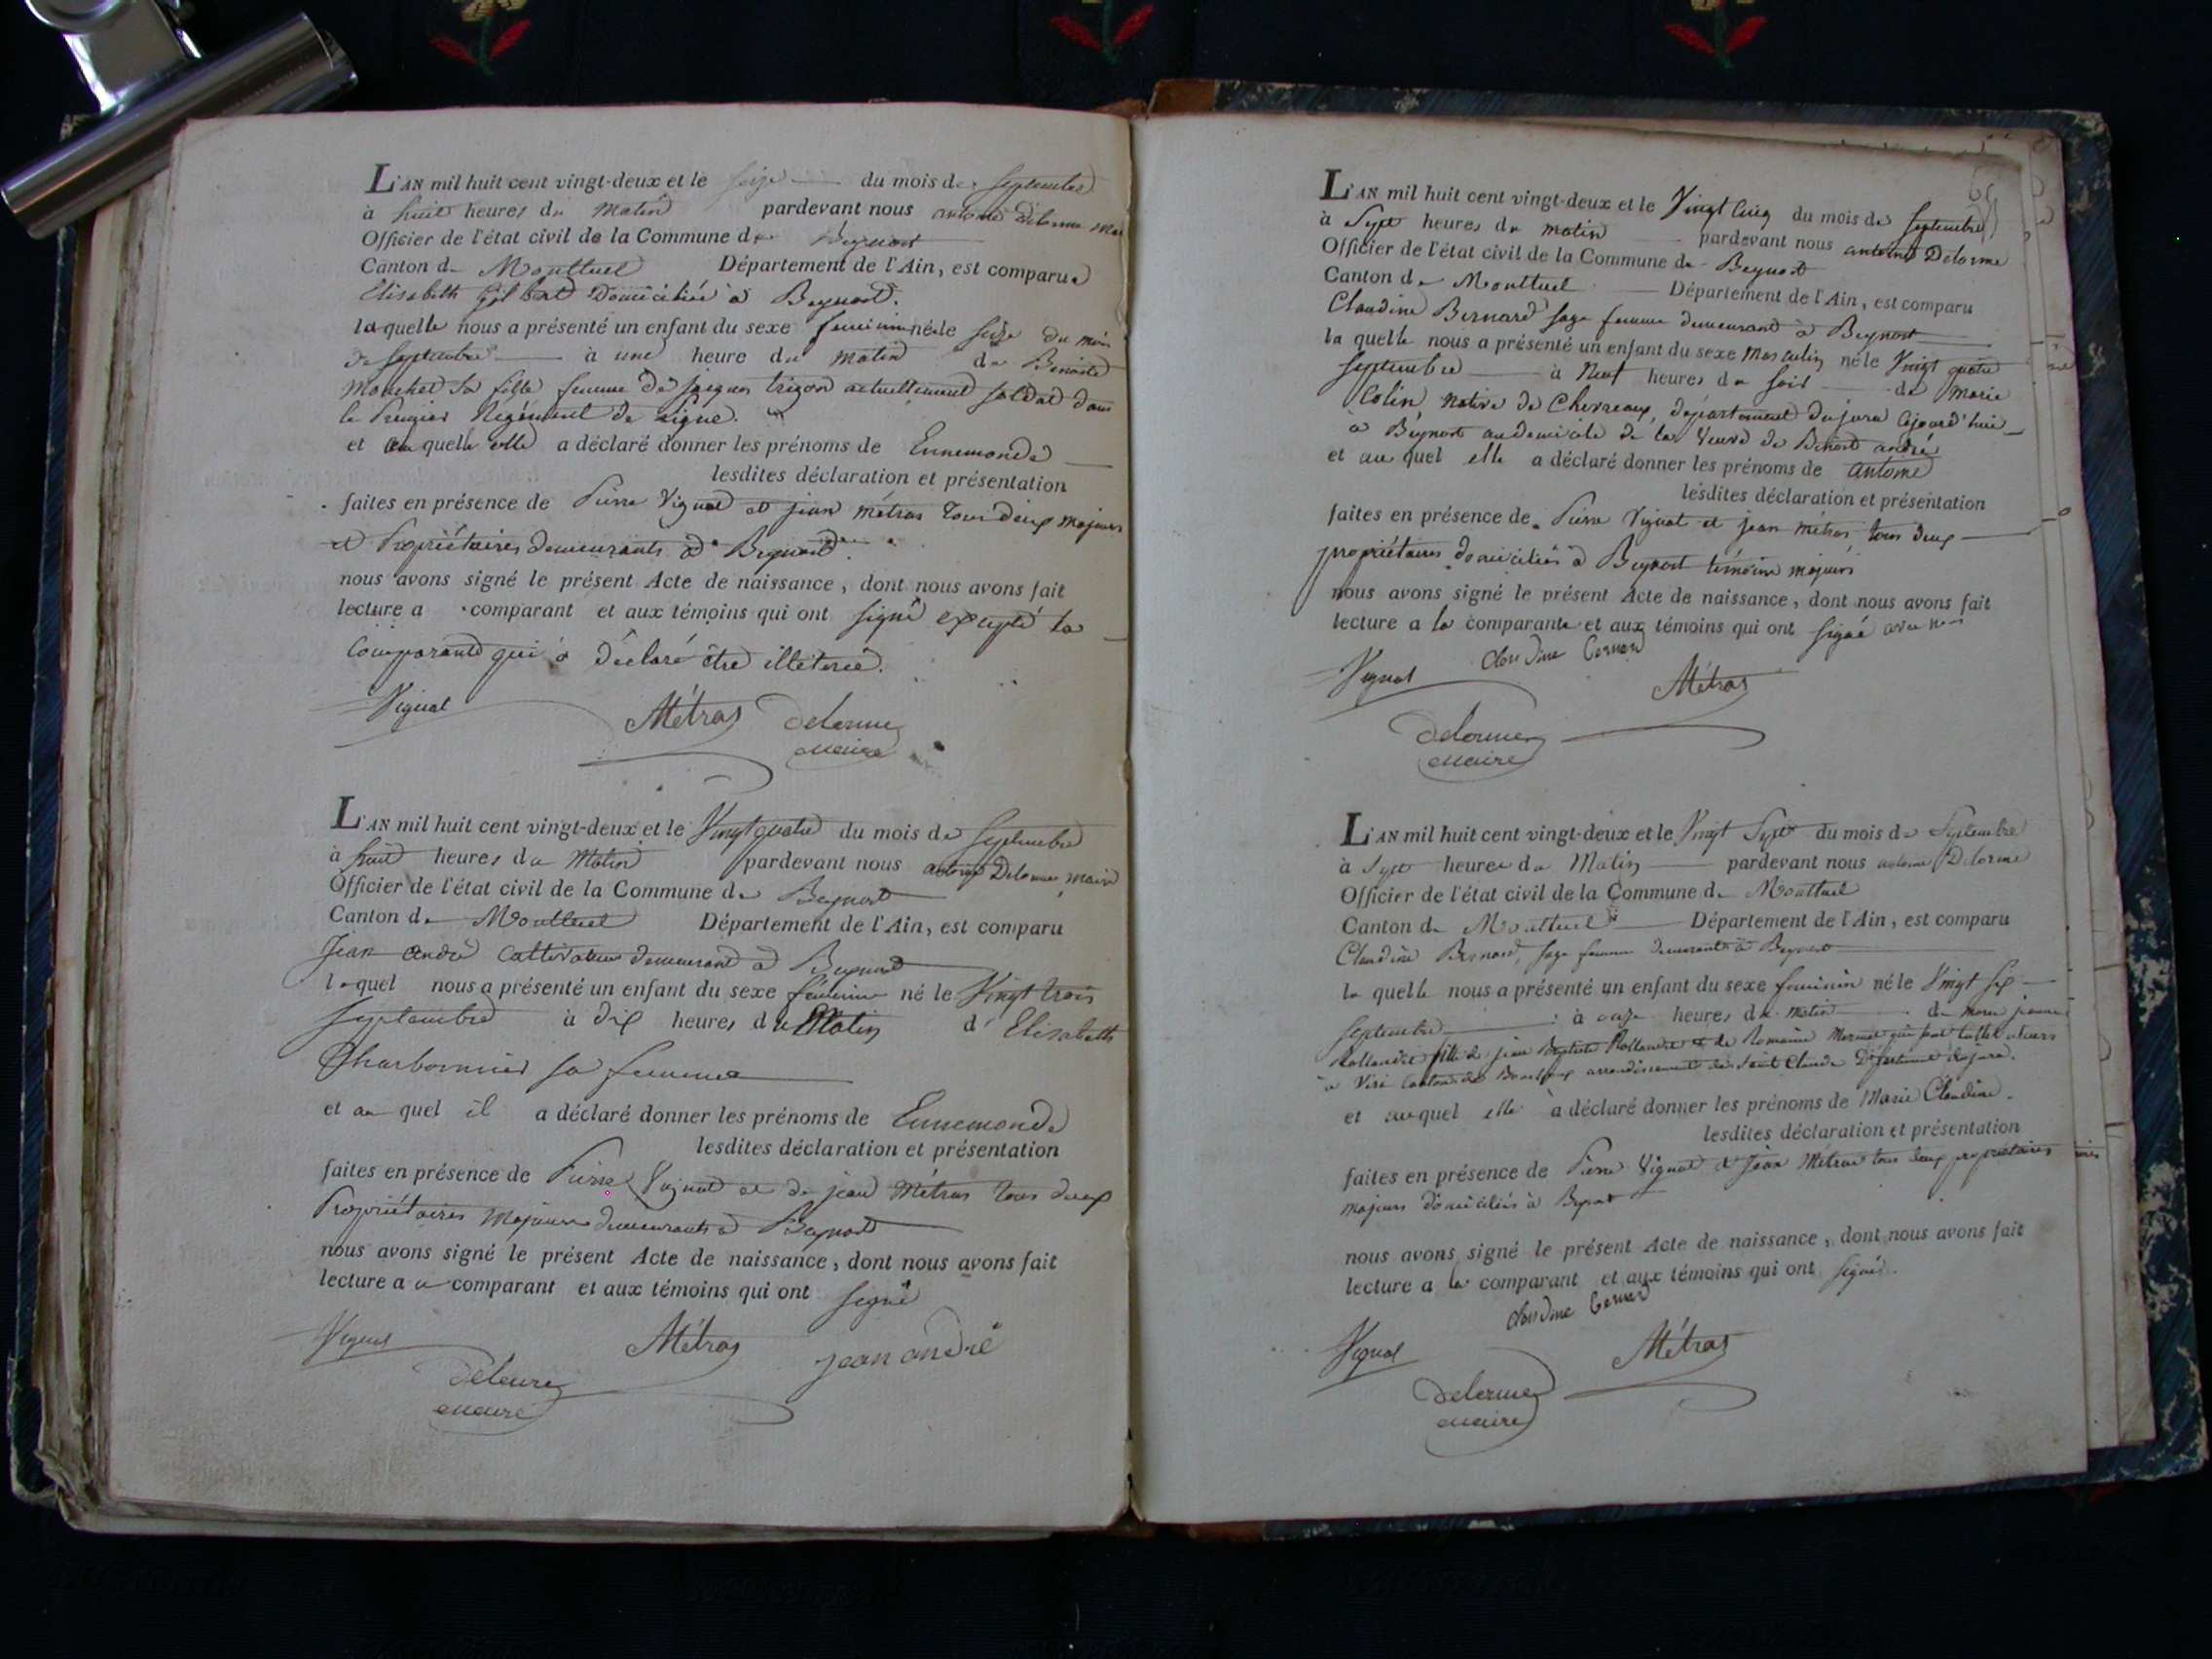 L'AN mil huit cent vingt-deux et le seize du mois de septembre
à huit heures du matin pardevant nous antoine Delorme
Officier de l'état civil de la Commune de Beynost
Canton de Montluel Département de l'Ain, est comparue
Elisabeth Gilbert Domiciliée à Beynost.
laquelle nous a présenté un enfant du sexe feminin né le seize du mois
de septembre à une heure du matin de Benoite
Mouchet sa fille femme de Jacques trizon actuellement soldat dans
le Premier Régiment de Ligne.
et au quelle elle a déclaré donner les prénoms de Ennemonde
lesdites déclaration et présentation
faites en présence de Pierre Vignat et jean métras tous deux majeurs
et Propriétaires demeurants à Beynost.
nous avons signé le présent Acte de naissance, dont nous avons fait
lecture a comparant et aux témoins qui ont signé excepté la
Comparante qui a déclaré être illeterée.
Vignat Métras Delorme
maire
L'AN mil huit cent vingt-deux et le Vingt quatre du mois de septembre
à huit heures du Matin pardevant nous antoine Delorme maire
Officier de l'état civil de la Commune de Beynost
Canton de Montluel Département de l'Ain, est comparu
Jean André Cultivateur demeurant à Beynost
lequel nous a présenté un enfant du sexe féminin né le Vingt trois
Septembre à dix heures du Matin d' Elisabeth
Charbonnier sa femme
et au quel il a déclaré donner les prénoms de Ennemonde
lesdites déclaration et présentation
faites en présence de Pierre Vignat et de jean Métras tous deux
Propriétaires Majeurs demeurants à Beynost
nous avons signé le présent Acte de naissance, dont nous avons fait
lecture a u comparant et aux témoins qui ont signé
Vignat Métras jean andré
Delorme
maire
L'AN mil huit cent vingt-deux et le Vingt Cinq du mois de septembre
à Sept heures du matin pardevant nous antoine Delorme
Officier de l'état civil de la Commune de Beynost
Canton de Montluel Département de l'Ain, est comparu
Claudine Bernard sage femme demeurant à Beynost
la quelle nous a présenté un enfant du sexe masculin né le Vingt quatre
septembre à Neuf heures du soir de Marie
Colin native de Chevreaux, département du jura
à Beynost au domicile de la Veuve de Benoit andré
et au quel elle a déclaré donner les prénoms de antoine
lesdites déclaration et présentation
faites en présence de Pierre Vignat et jean métras tous deux
propriétaires domiciliés à Beynost témoins majeurs
nous avons signé le présent Acte de naissance, dont nous avons fait
lecture a la comparante et aux témoins qui ont signé avec nous
Vignat Claudine bernard Métras
Delorme
maire
L'AN mil huit cent vingt-deux et le Vingt Sept du mois de Septembre
à Sept heures du Matin pardevant nous antoine Delorme
Officier de l'état civil de la Commune de Montluel
Canton de Montluel Département de l'Ain, est comparu
Claudine Bernard, sage femme demeurant à Beynost
la quelle nous a présenté un enfant du sexe feminin né le Vingt six
septembre à onze heures du matin de marie
Rollandet fille de jean Baptiste Rollandet et de Romaine qui sont Cultivateurs
à Viri Canton de arrondissement de Saint Claude Département du jura.
et auquel elle a déclaré donner les prénoms de Marie Claudine.
lesdites déclaration et présentation
faites en présence de Pierre Vignat et Jean Métras tous deux propriétaires
majeurs domiciliés à Beynost
nous avons signé le présent Acte de naissance, dont nous avons fait
lecture a la comparant et aux témoins qui ont signés.
Vignat Claudine bernard Métras
Delorme
maire